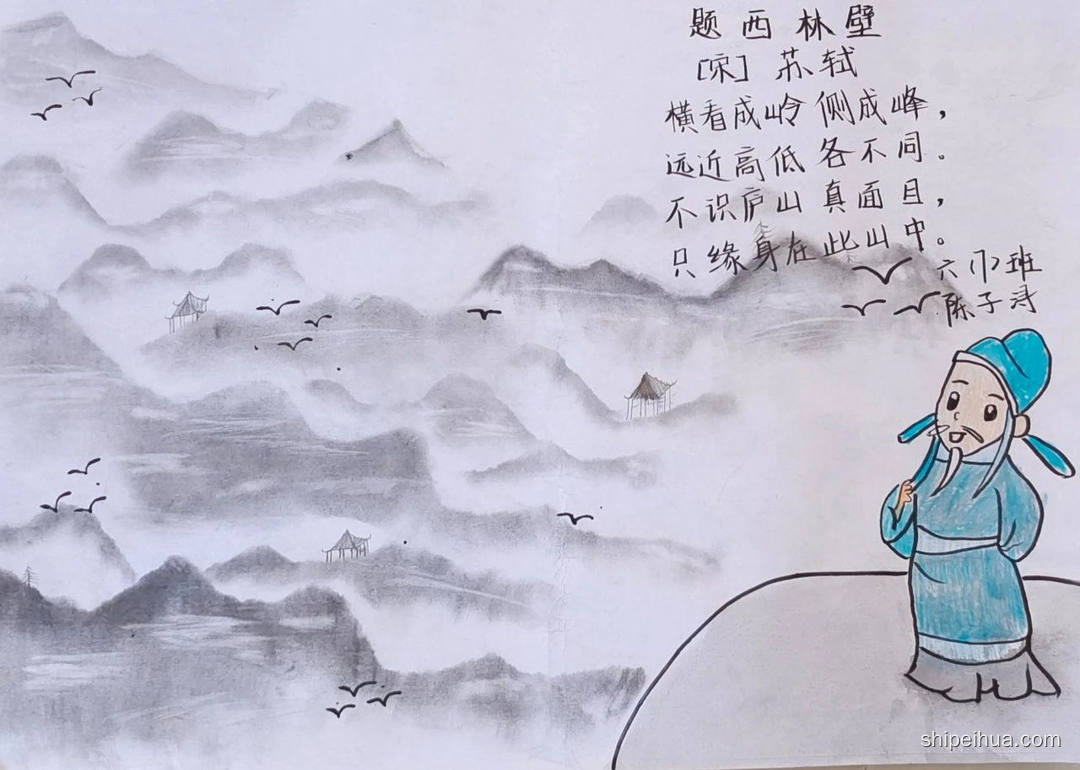 题西林壁
[宋] 苏轼
横看成岭侧成峰，
远近高低各不同。
不识庐山真面目，
只缘身在此山中。
六(1)班
陈子浔
shipeihua.com